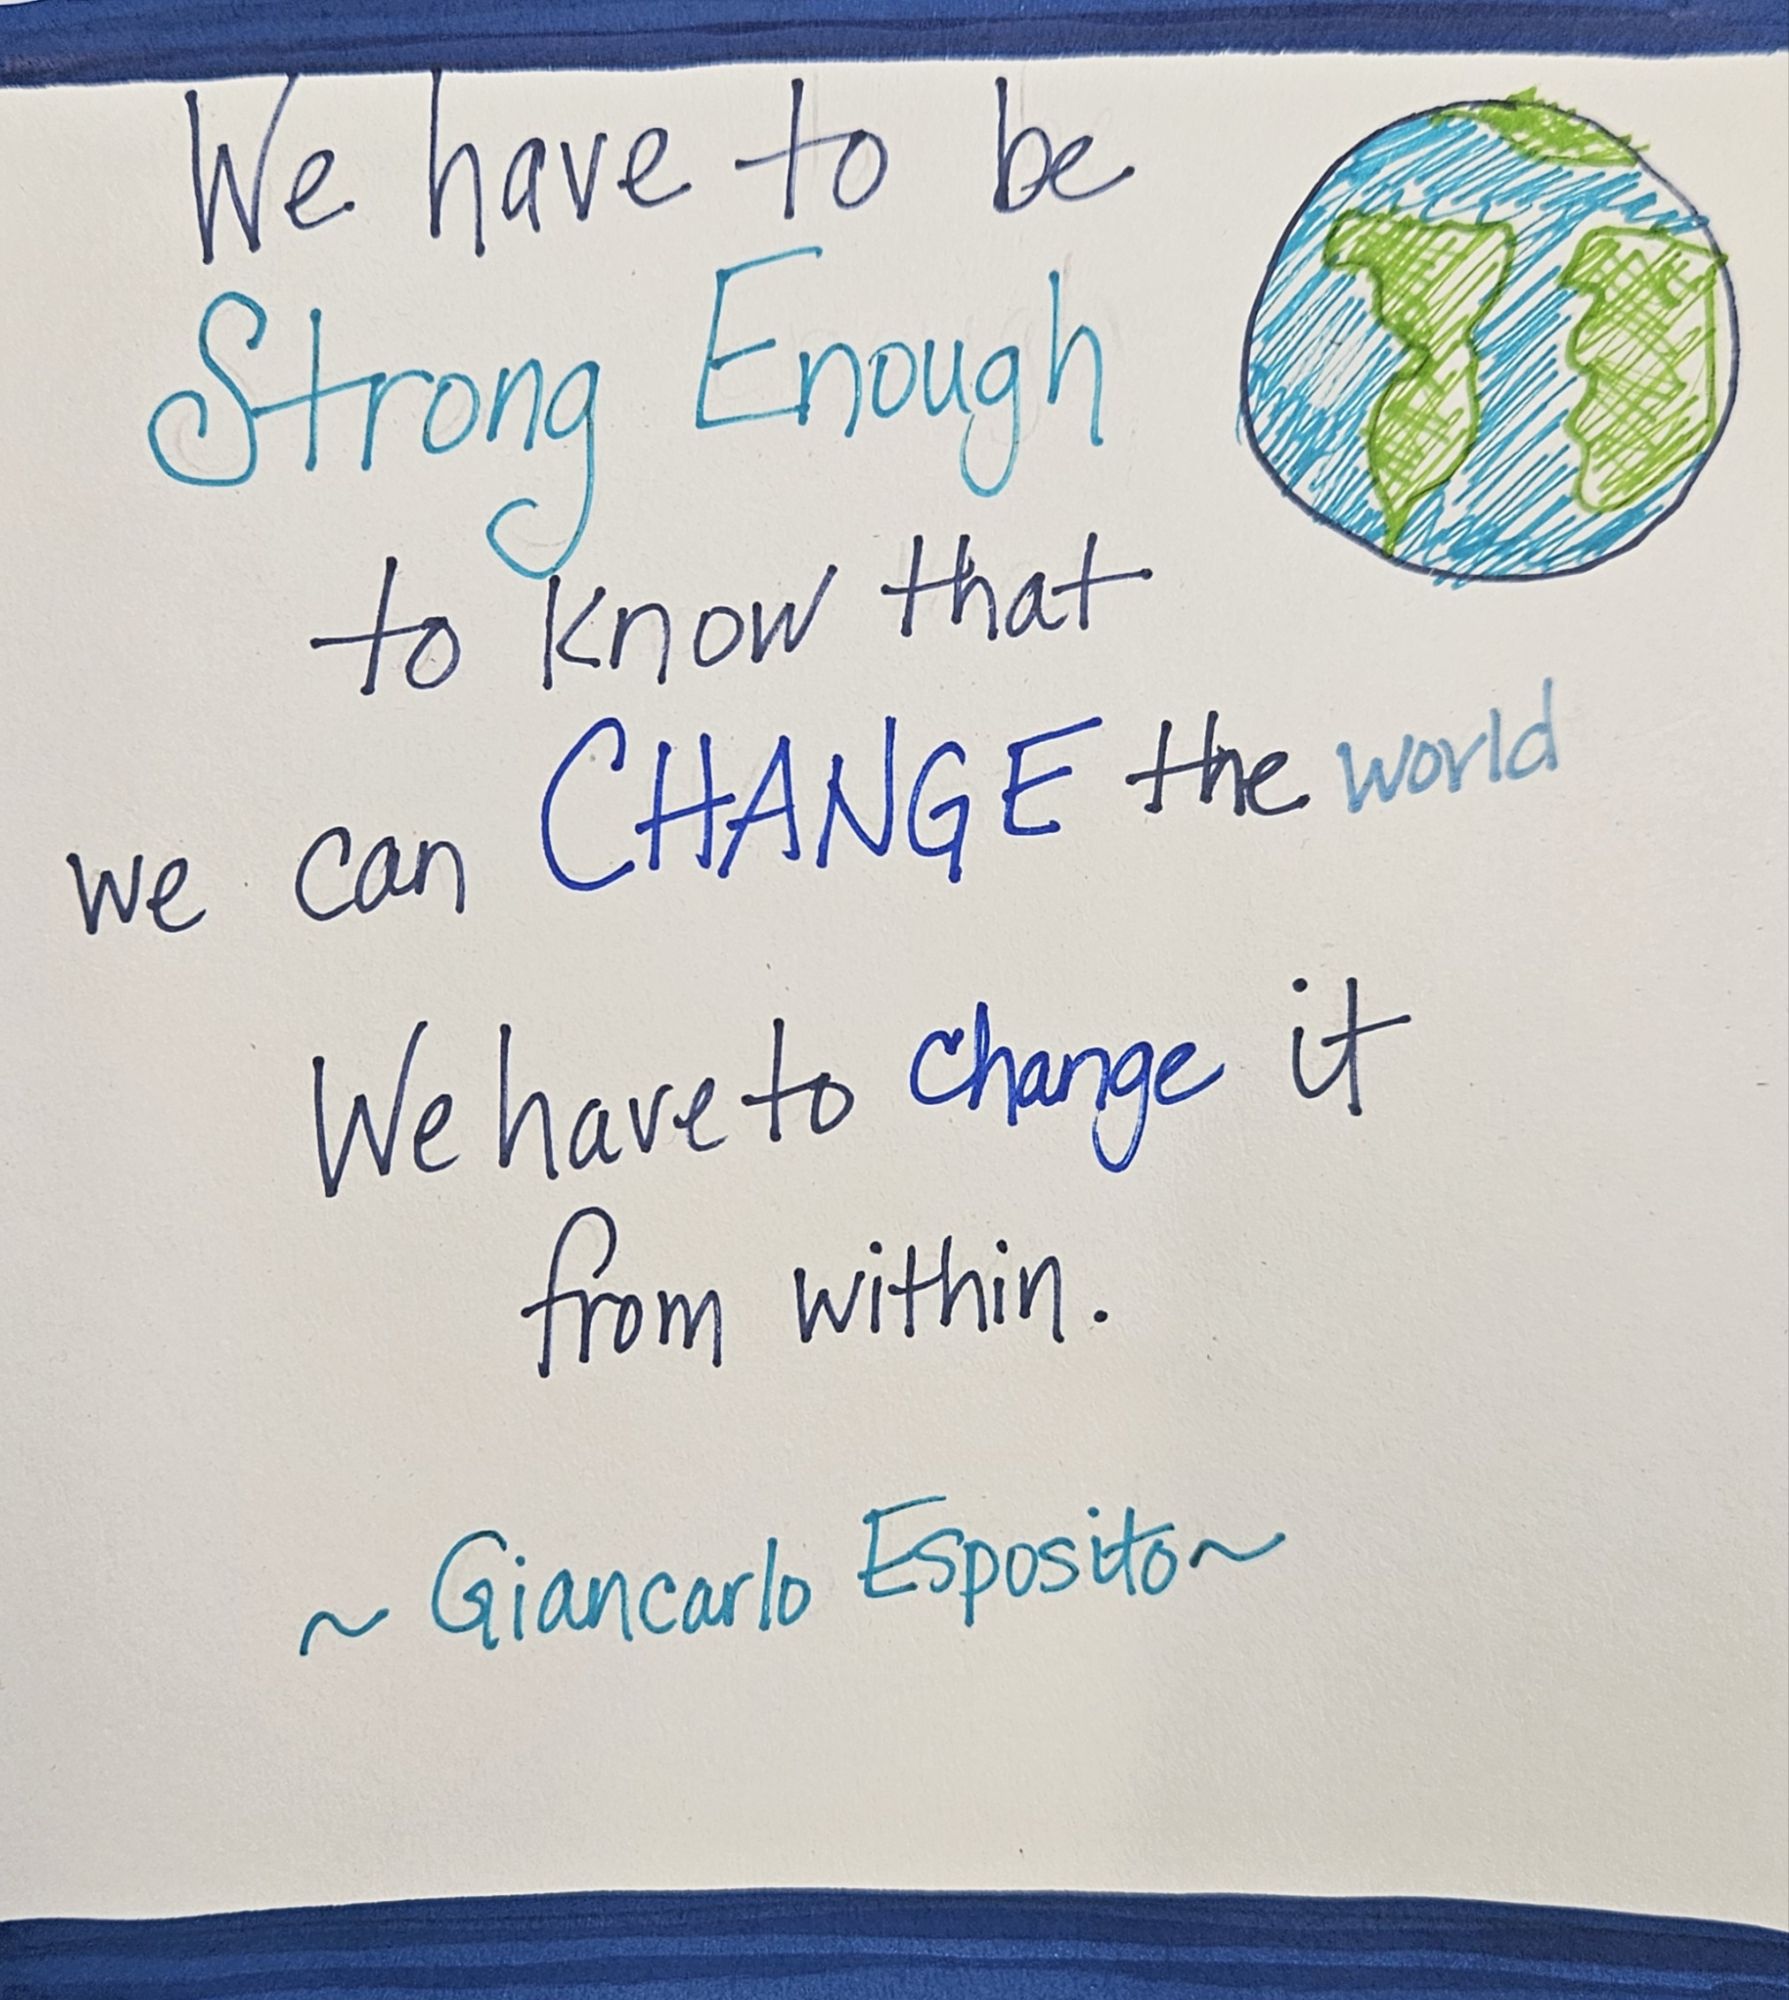 We have to be
Strong Enough
to know that
we can CHANGE the world
We have to change it
from within.
~ Giancarlo Esposito ~